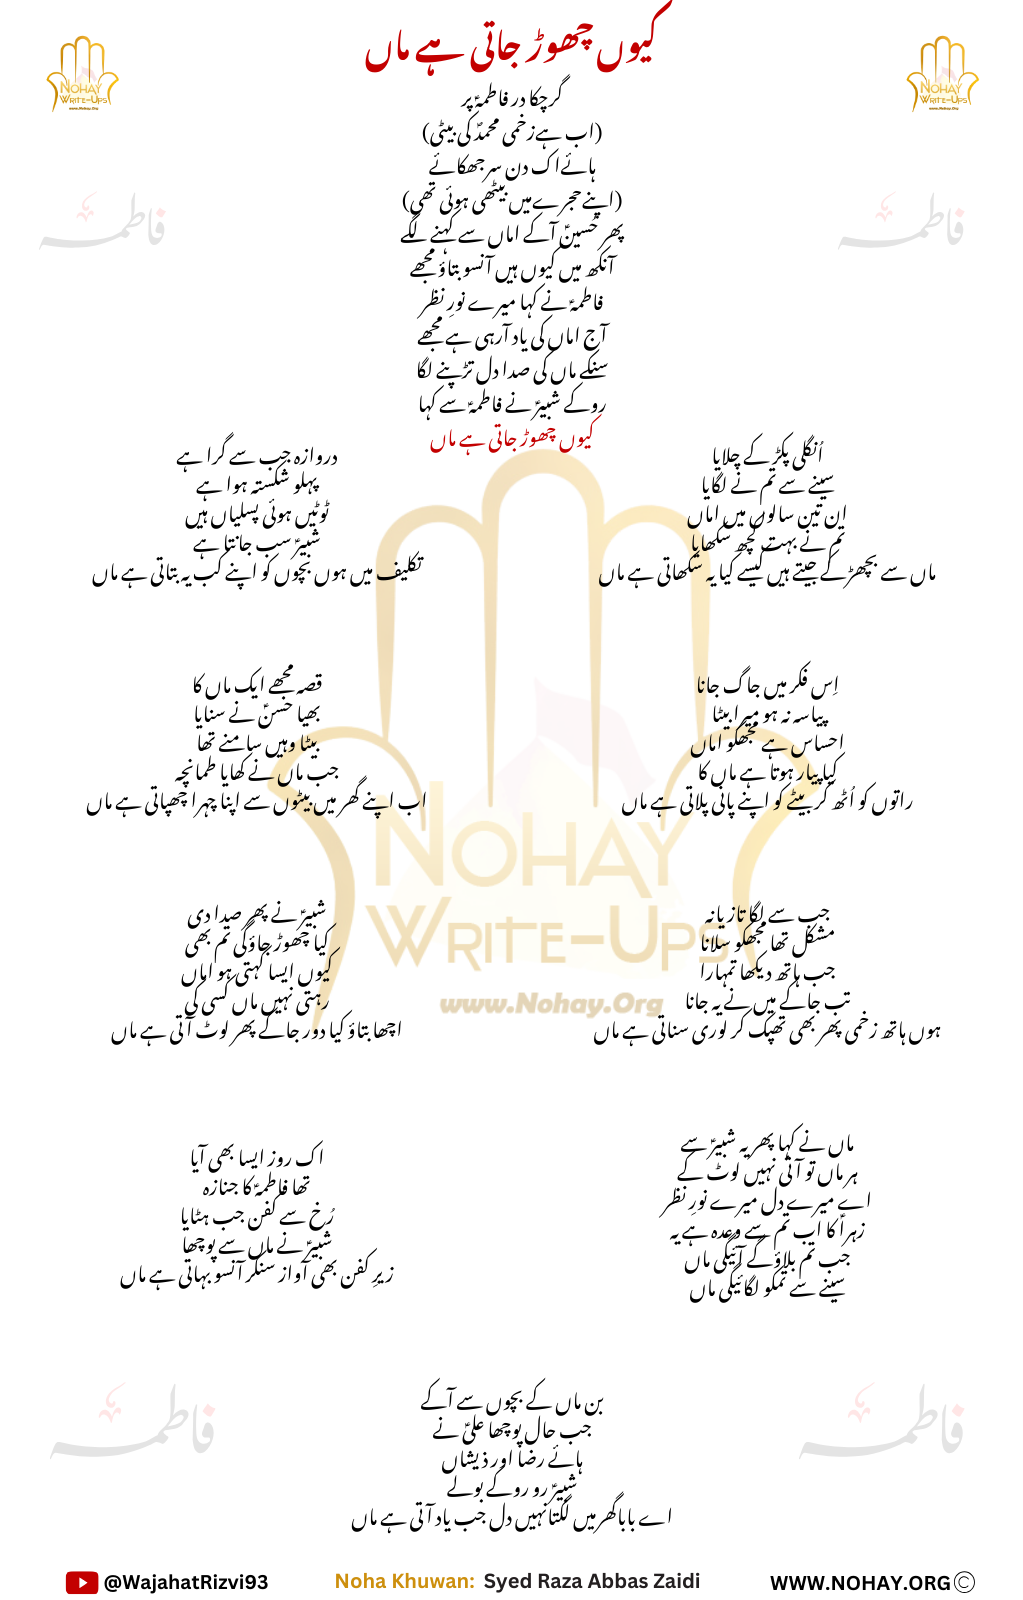 کیوں چھوڑ جاتی ہے ماں
NOHAY
WRITE-UPS
www.Nohay.Org
NOHAY
WRITE-UPS
www.Nohay.Org
گر چکا در فاطمہؑ پر
(اب ہے زخمی محمدؐ کی بیٹی)
ہائے اک دن سر جھکائے
(اپنے حجرے میں بیٹھی ہوئی تھی)
پھر حُسینؑ آکے اماں سے کہنے لگے
آنکھ میں کیوں ہیں آنسو بتاؤ مجھے
فاطمہؑ نے کہا میرے نورِ نظر
آج اماں کی یاد آرہی ہے مجھے
سنکے ماں کی صدا دل تڑپنے لگا
روکے شبیرؑ نے فاطمہؑ سے کہا
کیوں چھوڑ جاتی ہے ماں
فاطمہ
فاطمہ
اُنگلی پکڑ کے چلایا
سینے سے تم نے لگایا
اِن تین سالوں میں اماں
تم نے بہت کچھ سکھایا
ماں سے بچھڑ کے جیتے ہیں کیسے کیا یہ سکھاتی ہے ماں
دروازہ جب سے گرا ہے
پہلو شکستہ ہوا ہے
ٹوٹیں ہوئی پسلیاں ہیں
شبیرؑ سب جانتا ہے
تکلیف میں ہوں بچوں کو اپنے کب یہ بتاتی ہے ماں
اِس فکر میں جاگ جانا
پیاسہ نہ ہو میرا بیٹا
احساس ہے مجھکو اماں
کیا پیار ہوتا ہے ماں کا
راتوں کو اُٹھ کر بیٹے کو اپنے پانی پلاتی ہے ماں
قصہ مجھے ایک ماں کا
بھیا حسنؑ نے سنایا
بیٹا وہیں سامنے تھا
جب ماں نے کھایا طمانچہ
اب اپنے گھر میں بیٹوں سے اپنا چہرا چھپاتی ہے ماں
NOHAY
WRITE-UPS
www.Nohay.Org
جب سے لگا تازیانہ
مشکل تھا مجھکو سلانا
جب ہاتھ دیکھا تمہارا
تب جاکے میں نے یہ جانا
ہوں ہاتھ زخمی پھر بھی تھپک کر لوری سناتی ہے ماں
شبیرؑ نے پھر صدا دی
کیا چھوڑ جاؤگی تم بھی
کیوں ایسا کہتی ہو اماں
رہتی نہیں ماں کسی کی
اچھا بتاؤ کیا دور جاکے پھر لوٹ آتی ہے ماں
ماں نے کہا پھر یہ شبیرؑ سے
ہر ماں تو آتی نہیں لوٹ کے
اے میرے دل میرے نورِ نظر
زہراؑ کا اب تم سے وعدہ ہے یہ
جب تم بلاؤگے آئیگی ماں
سینے سے تمکو لگائیگی ماں
اک روز ایسا بھی آیا
تھا فاطمہؑ کا جنازہ
رُخ سے کفن جب ہٹایا
شبیرؑ نے ماں سے پوچھا
زیرِ کفن بھی آواز سنکر آنسو بہاتی ہے ماں
بن ماں کے بچوں سے آکے
جب حال پوچھا علیؑ نے
ہائے رضا اور ذیشاں
شبیرؑ رو روکے بولے
اے بابا گھر میں لگتا نہیں دل جب یاد آتی ہے ماں
فاطمہ
فاطمہ
@WajahatRizvi93
Noha Khuwan: Syed Raza Abbas Zaidi
WWW.NOHAY.ORG©